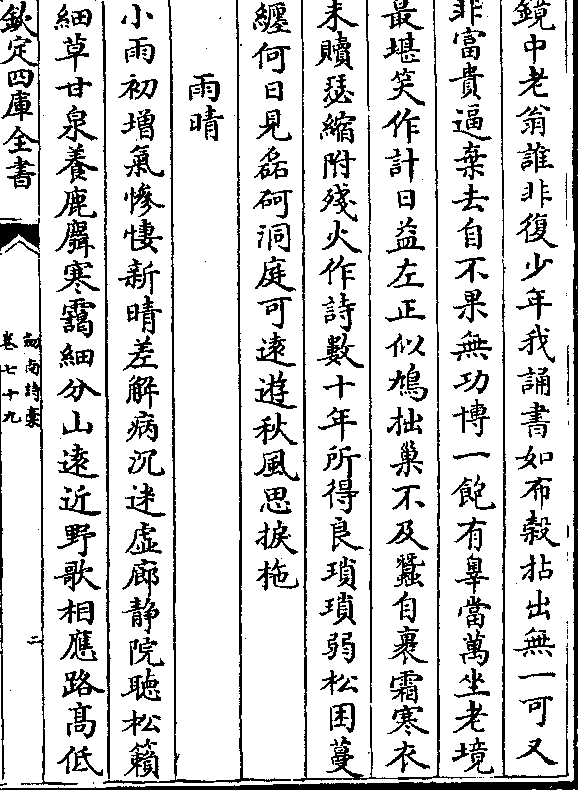 鏡中老翁誰非復少年我誦書如布榖拈出無一可又
非富貴逼棄去自不果無功博一飽有辠當萬坐老境
最堪笑作計日益左正似鳩拙巢不及蠶自裹霜寒衣
未贖瑟縮附殘火作詩數十年所得良瑣瑣弱松困蔓
纏何日見磊砢洞庭可遠遊秋風思捩柂
雨晴
小雨初增氣慘悽新晴差解病沉迷虛廊靜院聽松籟
細草甘泉養鹿麛寒靄細分山遠近野歌相應路髙低
欽定四庫全書
劔南詩藁
卷七十九
二